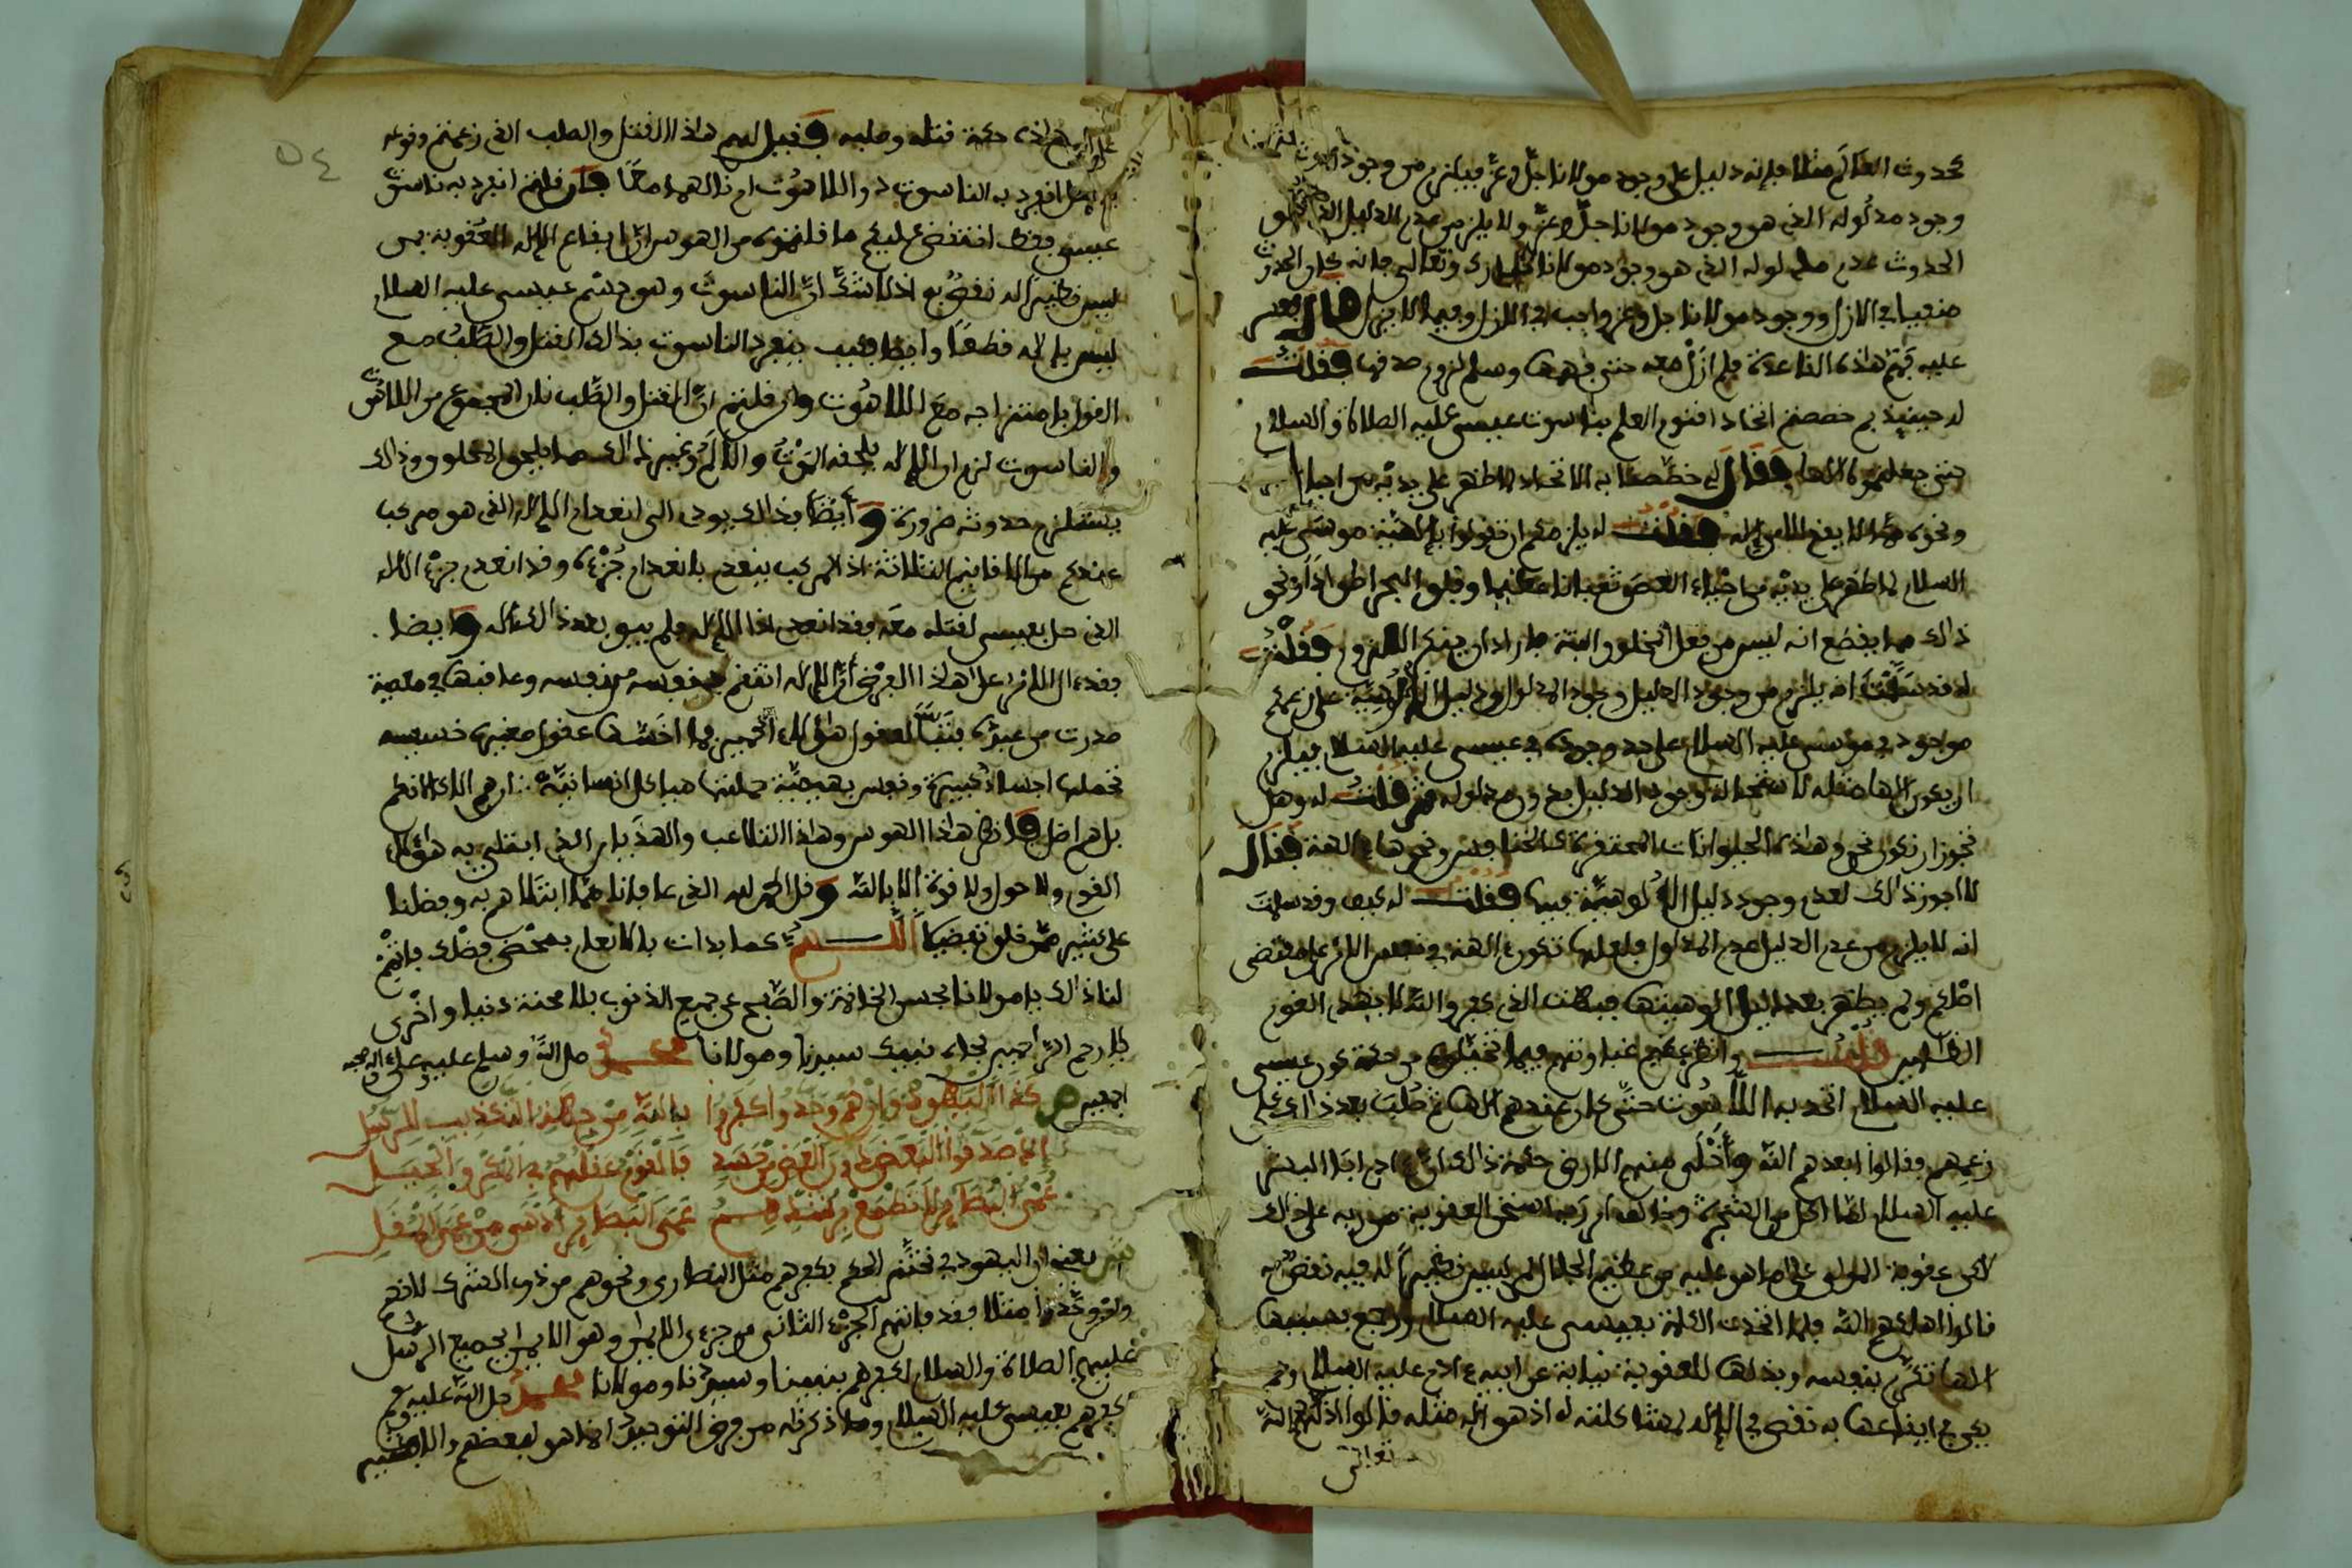 كحدوث العالم مثلا فإنه دليل على وجود مولانا جل وعز فيلزم من وجود
وجود مدلوله الذي هو وجود مولانا جل وعز ولا يلزم من عدم الدليل الذي هو
الحدوث عدم مدلوله الذي هو وجود مولانا تبارك وتعالى فإنه كان الحدوث
منفيا في الازل ووجود مولانا جل وعز واجب في الازل وفيما لا يزال قال
عليه فهم هاذه القاعدة فلم أزل معه حتى فهمها وسلم لزوم صدقها فقلت
له حينئذ لم خصصتم اتحاد اقنوم العلم بناسوت عيسى عليه الصلاة والسلام
حتى جعلتموه الاها فقال لي خصصنا به الاتحاد لما ظهر على يديه من احياء
ونحوه مما لا يقع الا من إله فقلت له يلزمكم ان تقولوا بإلهية موسى عليه
السلام لما ظهر على يديه من احياء العصى ثعبانا عظيما وفلق البحر اطوادا ونحو
ذالك مما يقطع انه ليس من فعل المخلوق البتة فاراد ان ينكر اللزوم فقلت
له قد سلمت انه يلزم من وجود الدليل وجود المدلول ودليل الالوهية على زعمكم
موجود في موسى عليه السلام على حد وجوده في عيسى عليه السلام فيلزم
ان يكون إلها مثله لاستحالة وجود الدليل بدون مدلوله ثم قلت له وهل
تجوز ان تكون نحو هاذه الحيوانات المحتقرة كالخنافس ونحوها الهة فقال
لا اجوز ذالك لعدم وجود دليل الالوهية فيها فقلت له كيف وقد سلمت
انه لا يلزم من عدم الدليل عدم المدلول فلعلها تكون الهة في نفس الامر على مقتضى
اصلكم ولم يظهر بعد دليل الوهيتها فبهت الذي كفر والله لا يهدي القوم
الظالمين قلت وانظر عظيم غباوتهم فيما تخيلوه من حكمة كون عيسى
عليه السلام اتحد به اللاهوت حتى كان عندهم الها ثم صلب بعد ذالك على
زعمهم وقالوا ابعدهم الله وأخلى منهم الارض حكمة ذالك ان ءادم ابا البشر
عليه السلام لما اكل من الشجرة وخالف امر ربه استحق العقوبة من ربه على ذالك
لاكن عقوبة المولى على ما هو عليه من عظيم الجلال لمن ليس نظيرا له فيه نقص به
قالوا اهلكهم الله فلما اتحدت الكلمة بعيسى عليه السلام ورجع بسببها
الها تكرم بنفسه وبذلها للعقوبة نيابة عن ابيه ءادم عليه السلام ولم
يكن في ايقاعها به نقص في الإله لمشاكلته له اذ هو إله مثله قالوا اذلهم الله
تعالى
هاذه حكمة قتله وصلبه فقيل لهم هاذا القتل والصلب الذي زعمتم وقوعه
هل انفرد به الناسوت دون اللاهوت او نالهما معا فإن قلتم انفرد به ناسوت
عيسى فقط انتقض عليكم ما قلتموه من الهوس ان ايقاع الإله العقوبة بمن
ليس نظيرا له نقص به اذ لا شك ان الناسوت وهو جسم عيسى عليه السلام
ليس بإلاه قطعا وايضا فكيف ينفرد الناسوت بذالك القتل والصلب مع
القول بامتزاجه مع اللاهوت وان قلتم ان القتل والصلب نال المجموع من اللاهوت
والناسوت لزم ان الإله يلحقه الموت والألم وغير ذالك مما يلحق المخلوق وذالك
يستلزم حدوثه ضرورة وأيضا بذالك يودي الى انعدام الإله الذي هو مركب
عندكم من الاقانيم الثلاثة اذ المركب ينعدم بانعدام جزئه وقد انعدم جزء الاله
الذي حل بعيسى لقتله معه فقد انعدم اذا الإله فلم يبق بعد ذالك اله وايضا
فقد ءال الامر على هاذا الفرض أن الإله انتقم لنفسه من نفسه وعاقبها في معصية
صدرت من غيره فتبا لعقول هاؤلاء الحمير فما اخسها عقول صغيرة خسيسة
تحملها اجساد كبيرة ونفوس بهيمية حملتها هياكل انسانية ان هم الا كالانعام
بل هم اضل وانظر هاذا الهوس وهاذا التلاعب والهذيان الذي ابتلي به هؤلاء
القوم ولا حول ولا قوة الا بالله وقل الحمد لله الذي عافانا مما ابتلاهم به وفضلنا
على كثير ممن خلق تفضيلا اللهم كما بدات بالانعام بمحض فضلك فاتمم
لنا ذالك يا مولانا بحسن الخاتمة والصفح عن جميع الذنوب بلا محنة دنيا واخرى
يا ارحم الراحمين بجاه نبيك سيدنا ومولانا محمد صلى الله وسلم عليه وعلى اله وصحبه
اجمعين ص كذا اليهود وإن هم وحدوا كفروا بالله من جهة التكذيب للرسل
عمى البصائر
ش يعني ان اليهود في تحتم الحكم بكفرهم مثل النصارى ونحوهم من ذوي الشرك لانهم
وإن وحدوا مثلا فقد فاتهم الجزء الثاني من جزءي الايمان وهو الايمان بجميع الرسل
عليهم الصلاة والسلام لكفرهم بنبينا وسيدنا ومولانا محمد صلى الله عليه وسلم
كفرهم بعيسى عليه السلام وما ذكرته من فرض التوحيد انما هو لبعضهم